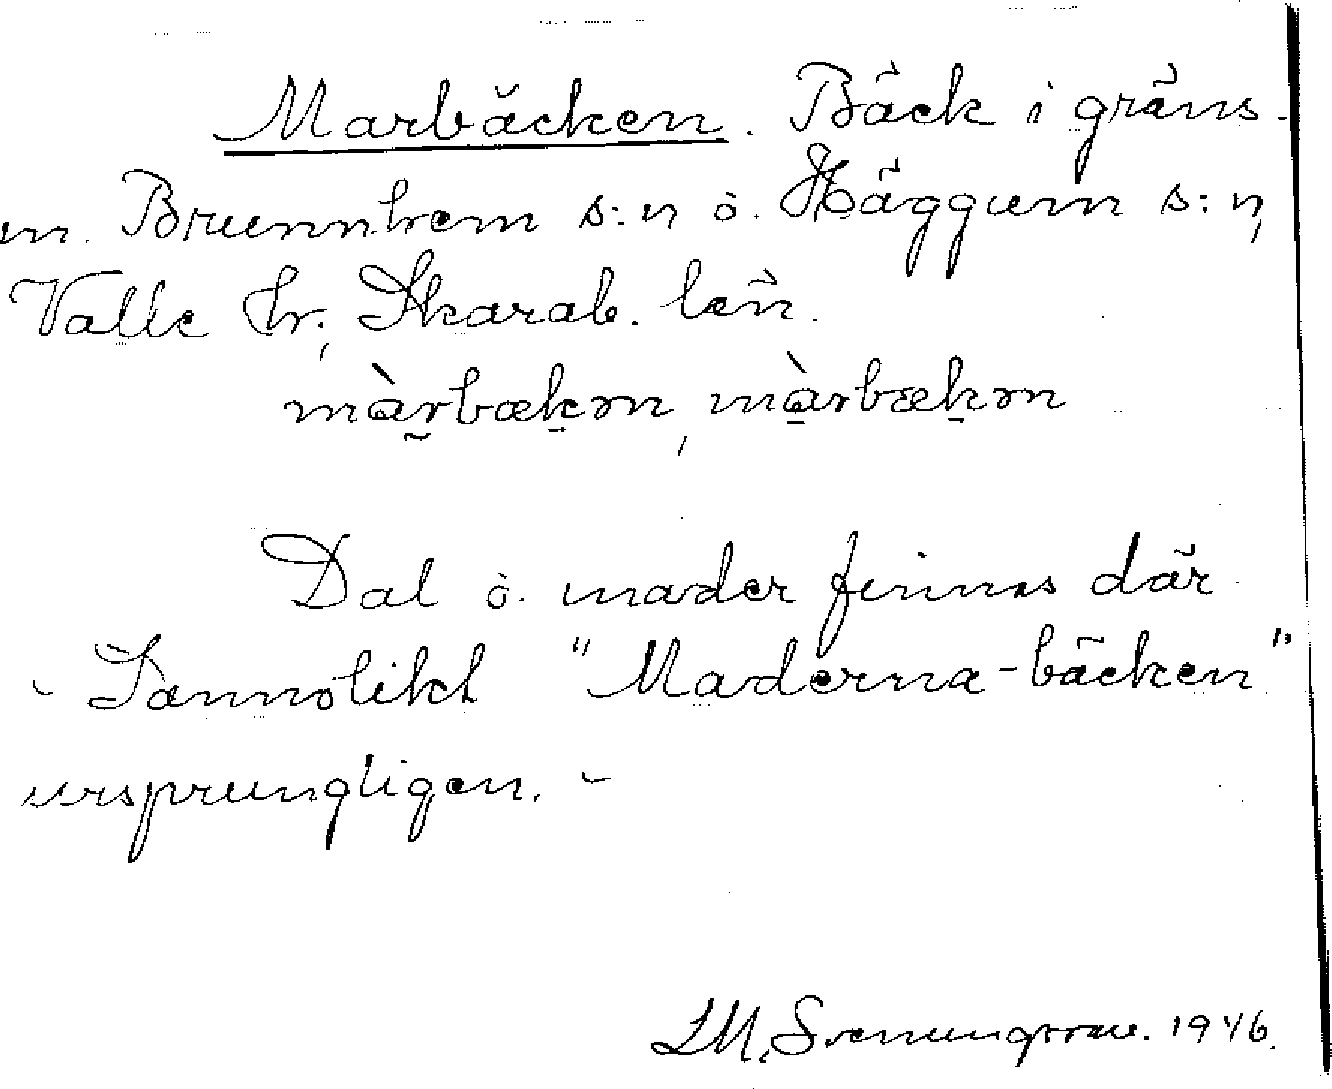 Marbäcken. Bäck i gräns-
m. Brunnhem s:n o. Häggum s:n,
Valle hr, Skarab. län.
màrbækən, màrbækən
Dal o. mader finnas där
- Sannolikt "Maderna-bäcken"
ursprungligen. -
LM. Svenungsson. 1946.